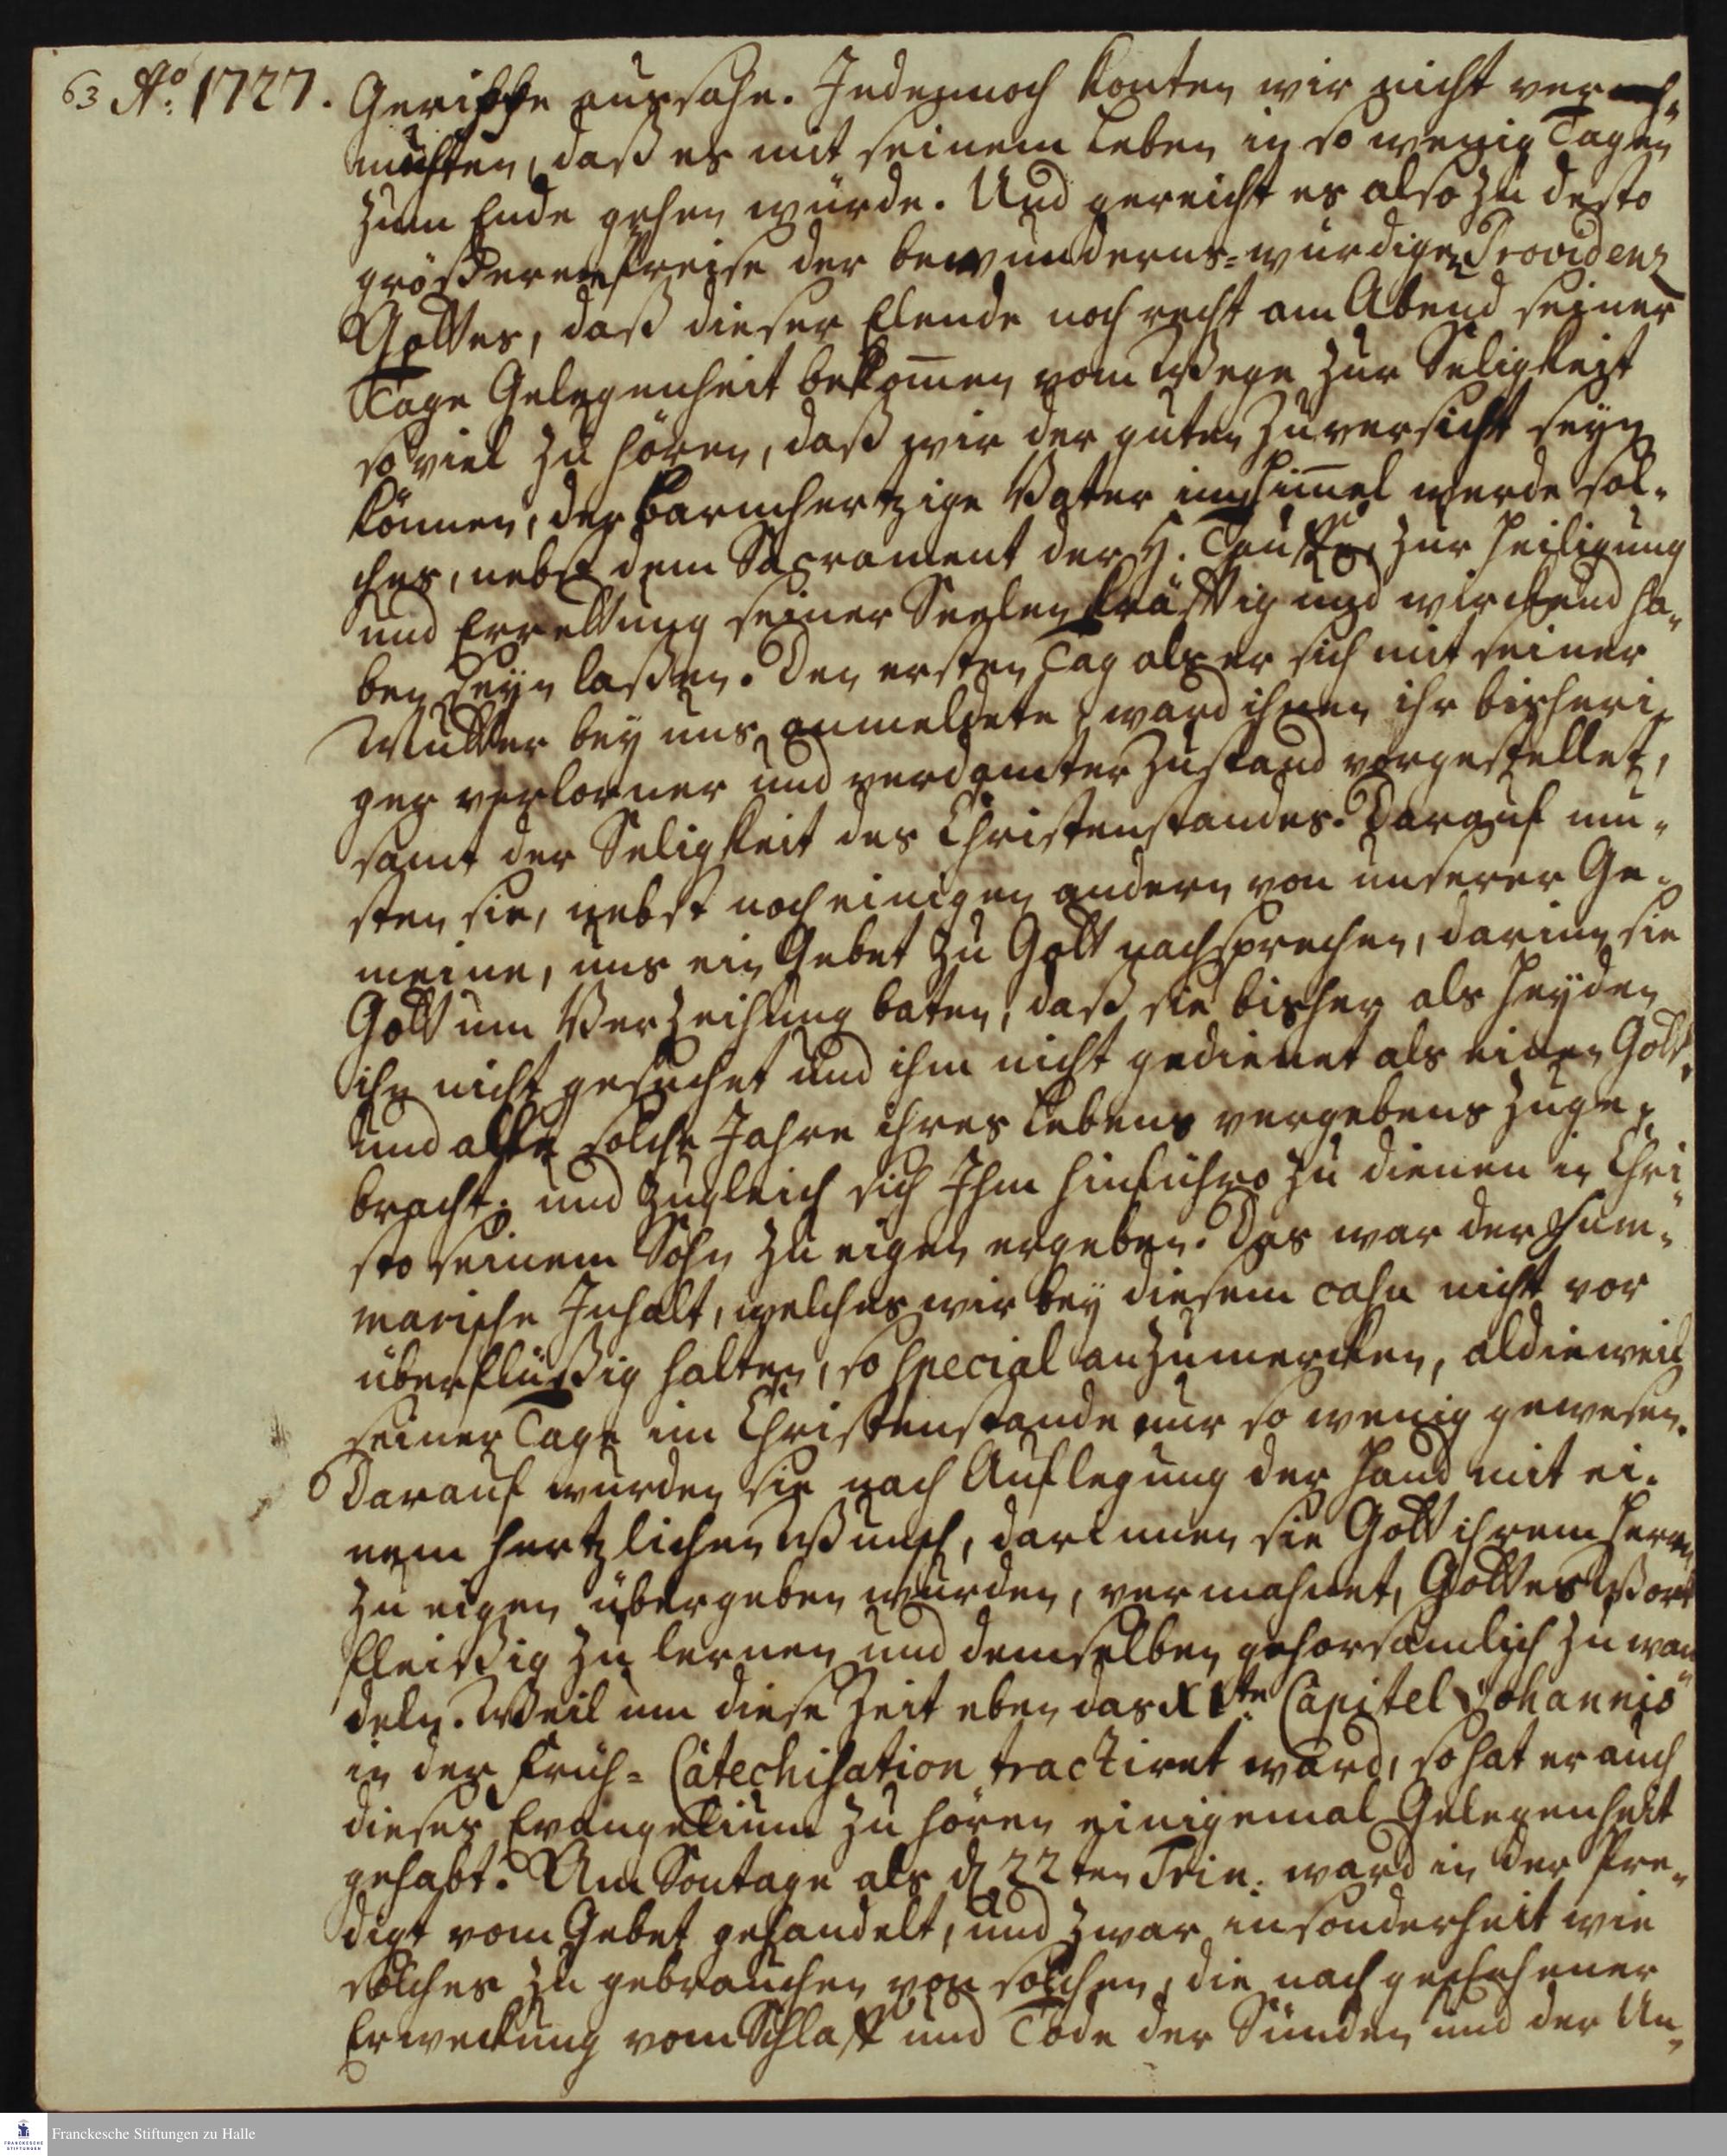 63 Ao: 1727.
Gerippe aussahe. Indennoch konten wir nicht ver-
muhten, daß es mit seinem Leben in so wenig Tagen
zum Ende gehen würde. Und gereicht es also zu desto
größeren Preise der bewunderns-würdigen Providenz
Gottes, daß dieser Elende noch recht am Abend seiner
Tage Gelegenheit bekom̅en vom Wege zur Seligkeit
so viel zu hören, daß wir der guten Zuversicht seyn
können, der barmhertzige Vater im Him̅el werde sol-
ches, nebst dem Sacrament der H. Tauffe, zur Heiligung
und Errettung seiner Seelen kräfftig und wirckend ha-
ben seyn laßen. Den ersten Tag als er sich mit seiner
Mutter bey uns anmeldete, ward ihnen ihr bisheri-
ger verlorner und verdamter Zustand vorgestellet,
samt der Seligkeit des Christenstandes. Darauf mu-
sten sie, nebst noch einigen andern von unserer Ge-
meine, uns ein Gebet zu Gott nachsprechen, darinn sie
Gott um Verzeihung baten, daß sie bisher als Heyden
ihn nicht gesuchet und ihm nicht gedienet als einen Gott,
und alle solche Jahre ihres Lebens vergebens zuge-
bracht; und zugleich sich Ihm hinführo zu dienen in Chri-
sto seinem Sohn zu eigen ergeben. Das war der sum-
marische Inhalt, welches wir bey diesem casu nicht vor
überflüßig halten, so special anzumercken, aldieweil
seiner Tage im Christenstande nur so wenig gewesen.
Darauf wurden sie nach Auflegung der Hand mit ei-
nem hertzlichen Wunsch, darinnen sie Gott ihrem Herrn
zu eigen übergeben wurden, vermahnet, Gottes Wort
fleißig zu lernen und demselben gehorsamlich zu wan-
deln. Weil um diese Zeit eben das XIte Capitel Johannis
in der Früh-Catechisation tractiret ward, so hat er auch
dieses Evangelium zu hören einigemal Gelegenheit
gehabt. Am Sontage als d. 22ten Trin. ward in der Pre-
digt vom Gebet gehandelt, und zwar insonderheit wie
solches zu gebrauchen von solchen, die nach geschehener
Erweckung vom Schlaff und Tode der Sünden und der Un-
Franckesche Stiftungen zu Halle
FRANCKESCHE STIFTUNGEN